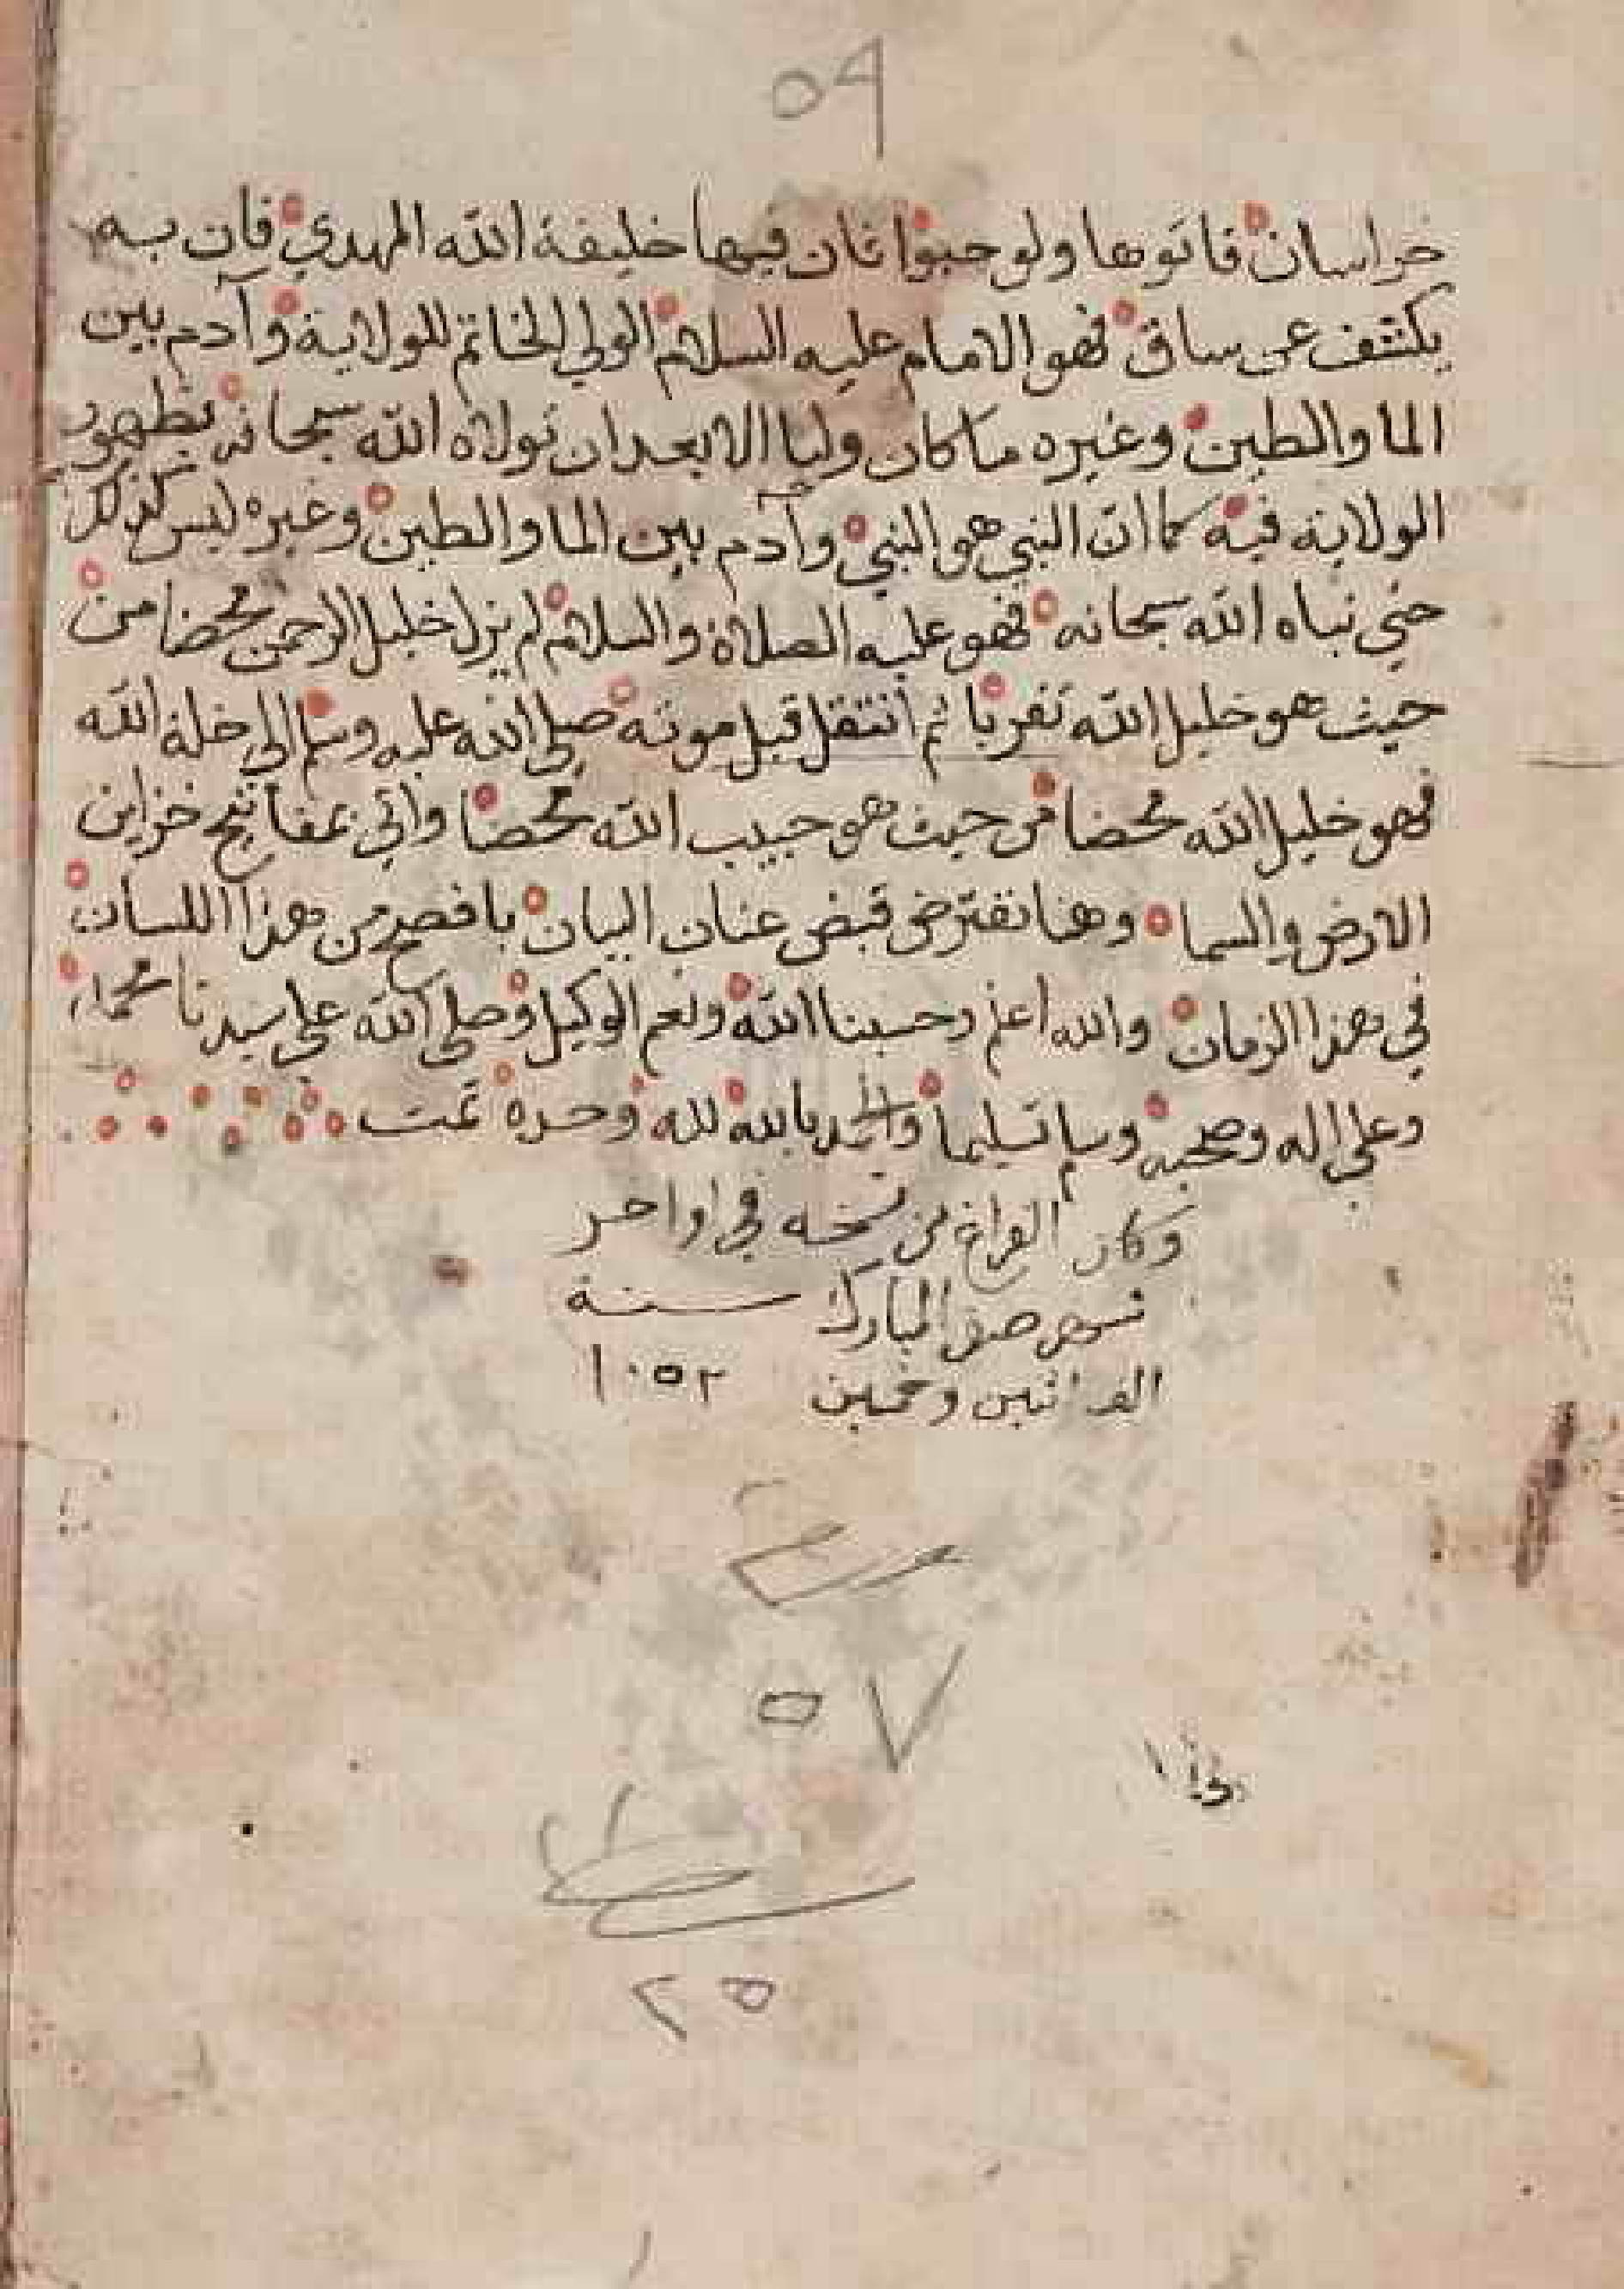 ٥٩
خراسان فاتوها ولو حبوا فان فيها خليفة الله المهدي فان به
يكشف عن ساق فهو الامام عليه السلام الولي الخاتم للولاية وآدم بين
الما والطين وغيره ما كان وليا الا بعد ان تولاه الله سبحانه بظهور
الولاية فيه كما ان النبي هو النبي وآدم بين الما والطين وغيره ليس كذلك
حتي نباه الله سبحانه فهو عليه الصلاة والسلام لم يزل خليل الرحمن محضا من
حيث هو خليل الله تقربا ثم انتقل قبل موته صلي الله عليه وسلم الي خلة الله
فهو خليل الله محضا من حيث هو حبيب الله محضا واتي بمفاتيح خزاين
الارض والسما وهنا نفترض قبض عنان البيان بافصح من هذا اللسان
في هذا الزمان والله اعلم وحسبنا الله ونعم الوكيل وصلي الله علي سيدنا محمد
وعلي اله وصحبه وسلم تسليما والحمد بالله لله وحده تمت
وكان الفراغ من نسخه في اواخر
شهر صفر المبارك سنة
الف اثنين وخمسين ١٠٥٢
٥٧